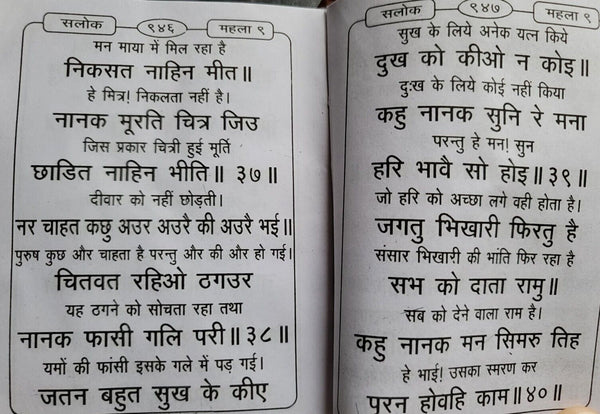 सलोक
९४६
महला ९
मन माया में मिल रहा है
निकसत नाहिन मीत॥
हे मित्र! निकलता नहीं है।
नानक मूरति चित्र जिउ
जिस प्रकार चित्री हुई मूर्ति
छाडित नाहिन भीति॥ ३७॥
दीवार को नहीं छोड़ती।
नर चाहत कछु अउर अउरै की अउरै भई॥
पुरुष कुछ और चाहता है परन्तु और की और हो गई।
चितवत रहिओ ठगउर
यह ठगने को सोचता रहा तथा
नानक फासी गलि परी॥ ३८॥
यमों की फांसी इसके गले में पड़ गई।
जतन बहुत सुख के कीए
सलोक
९४७
महला ९
सुख के लिये अनेक यत्न किये
दुख को कीओ न कोइ॥
दुःख के लिये कोई नहीं किया
कहु नानक सुनि रे मना
परन्तु हे मन! सुन
हरि भावै सो होइ॥३९॥
जो हरि को अच्छा लगे वही होता है।
जगतु भिखारी फिरतु है
संसार भिखारी की भांति फिर रहा है
सभ को दाता रामु॥
सब को देने वाला राम है।
कहु नानक मन सिमरु तिह
हे भाई! उसका स्मरण कर
पूरन होवहि काम॥४०॥